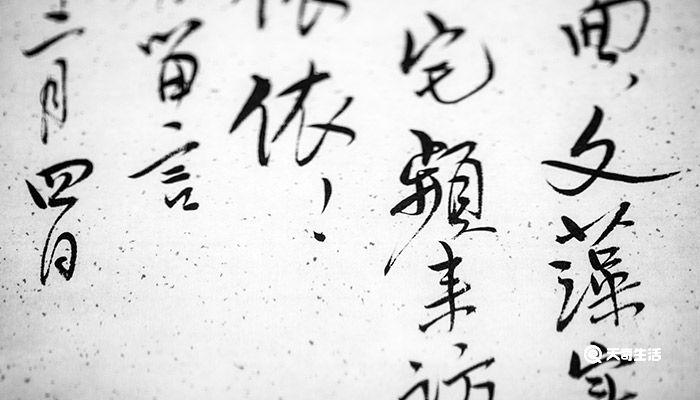 典,文藻家
宅頻来訪
依依!
留言
二月四日
天奇生活